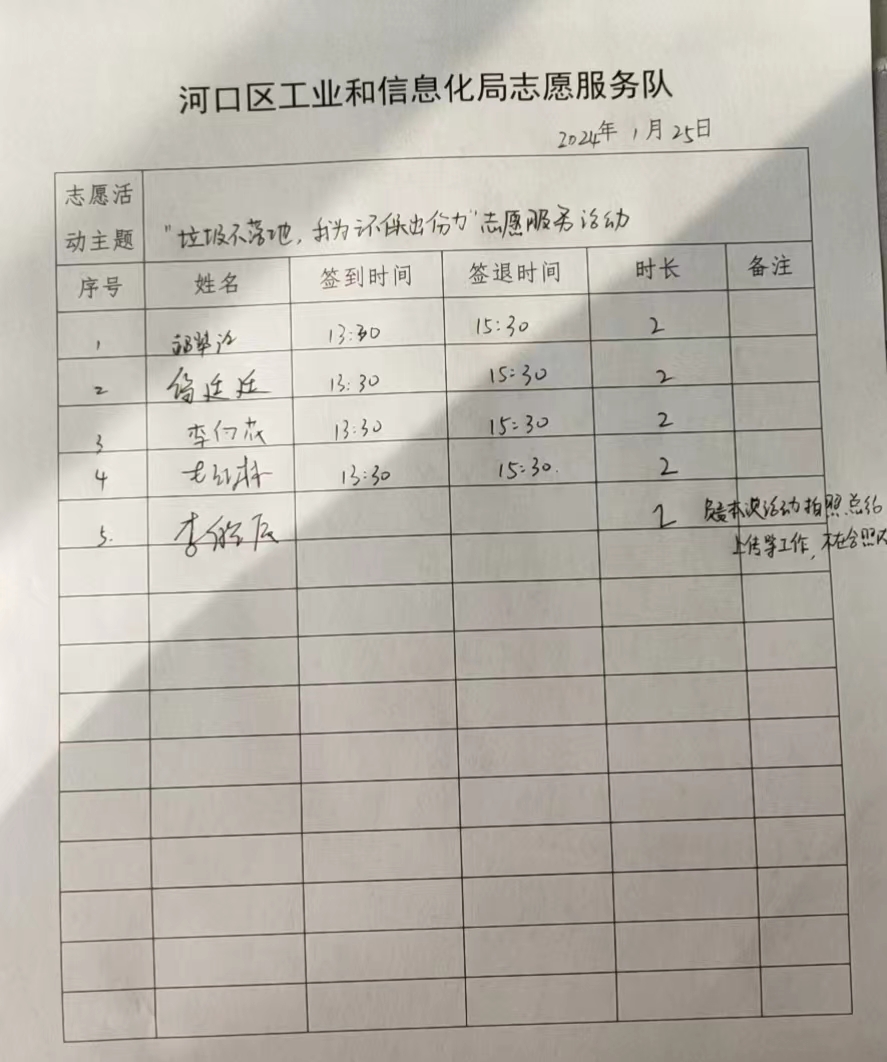 河口区工业和信息化局志愿服务队
2024年 1月25日
志愿活动主题
"垃圾不落地，我为环保出份力"志愿服务活动
序号 姓名 签到时间 签退时间 时长 备注
1 13:30 15:30 2
2 13:30 15:30 2
3 李 13:30 15:30 2
4 13:30 15:30. 2
5. 李 2 负责本次活动拍照总结
上传等工作，不在合照内